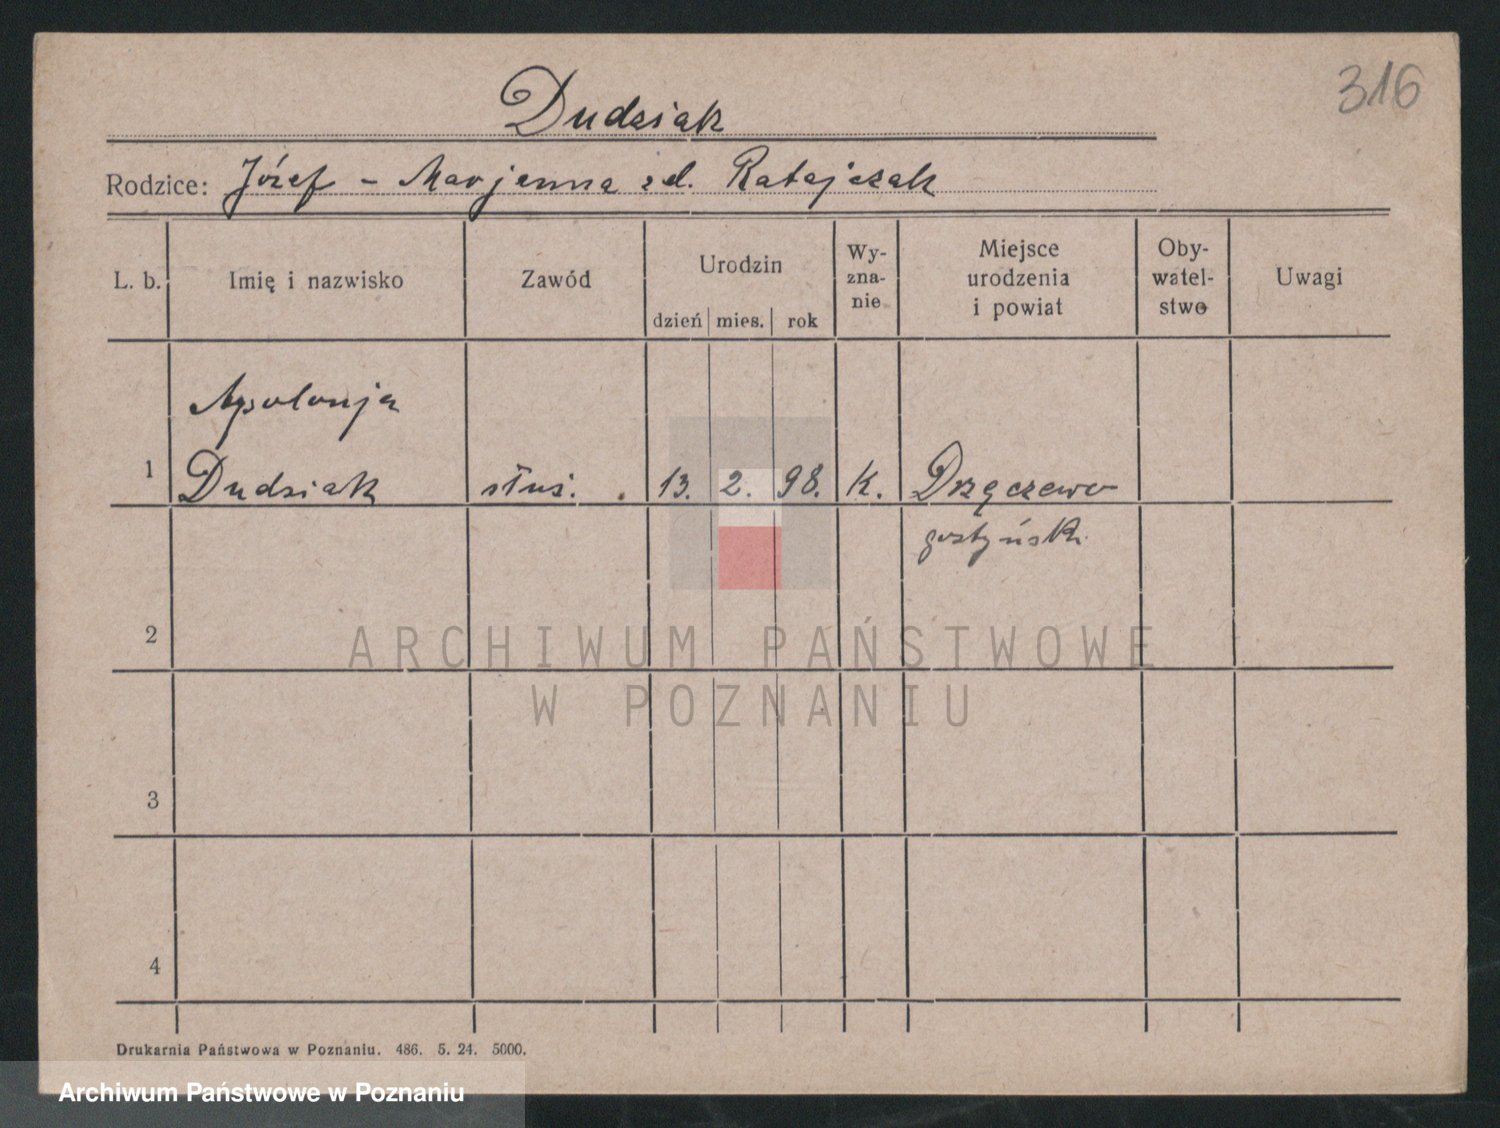 316
Dudziak
Rodzice: Józef - Marjanna zd. Ratajczak
L. b.
Imię i nazwisko
Zawód
Urodzin
dzień
mies.
rok
Wy-
zna-
nie
Miejsce
urodzenia
i powiat
Oby-
watel-
stwo
Uwagi
Apolonja
1 Dudziak służ. 13. 2. 98. K. Drzęczewo
gostyński
2
3
4
ARCHIWUM PAŃSTWOWE
W POZNANIU
Drukarnia Państwowa w Poznaniu. 486. 5. 24. 5000.
Archiwum Państwowe w Poznaniu